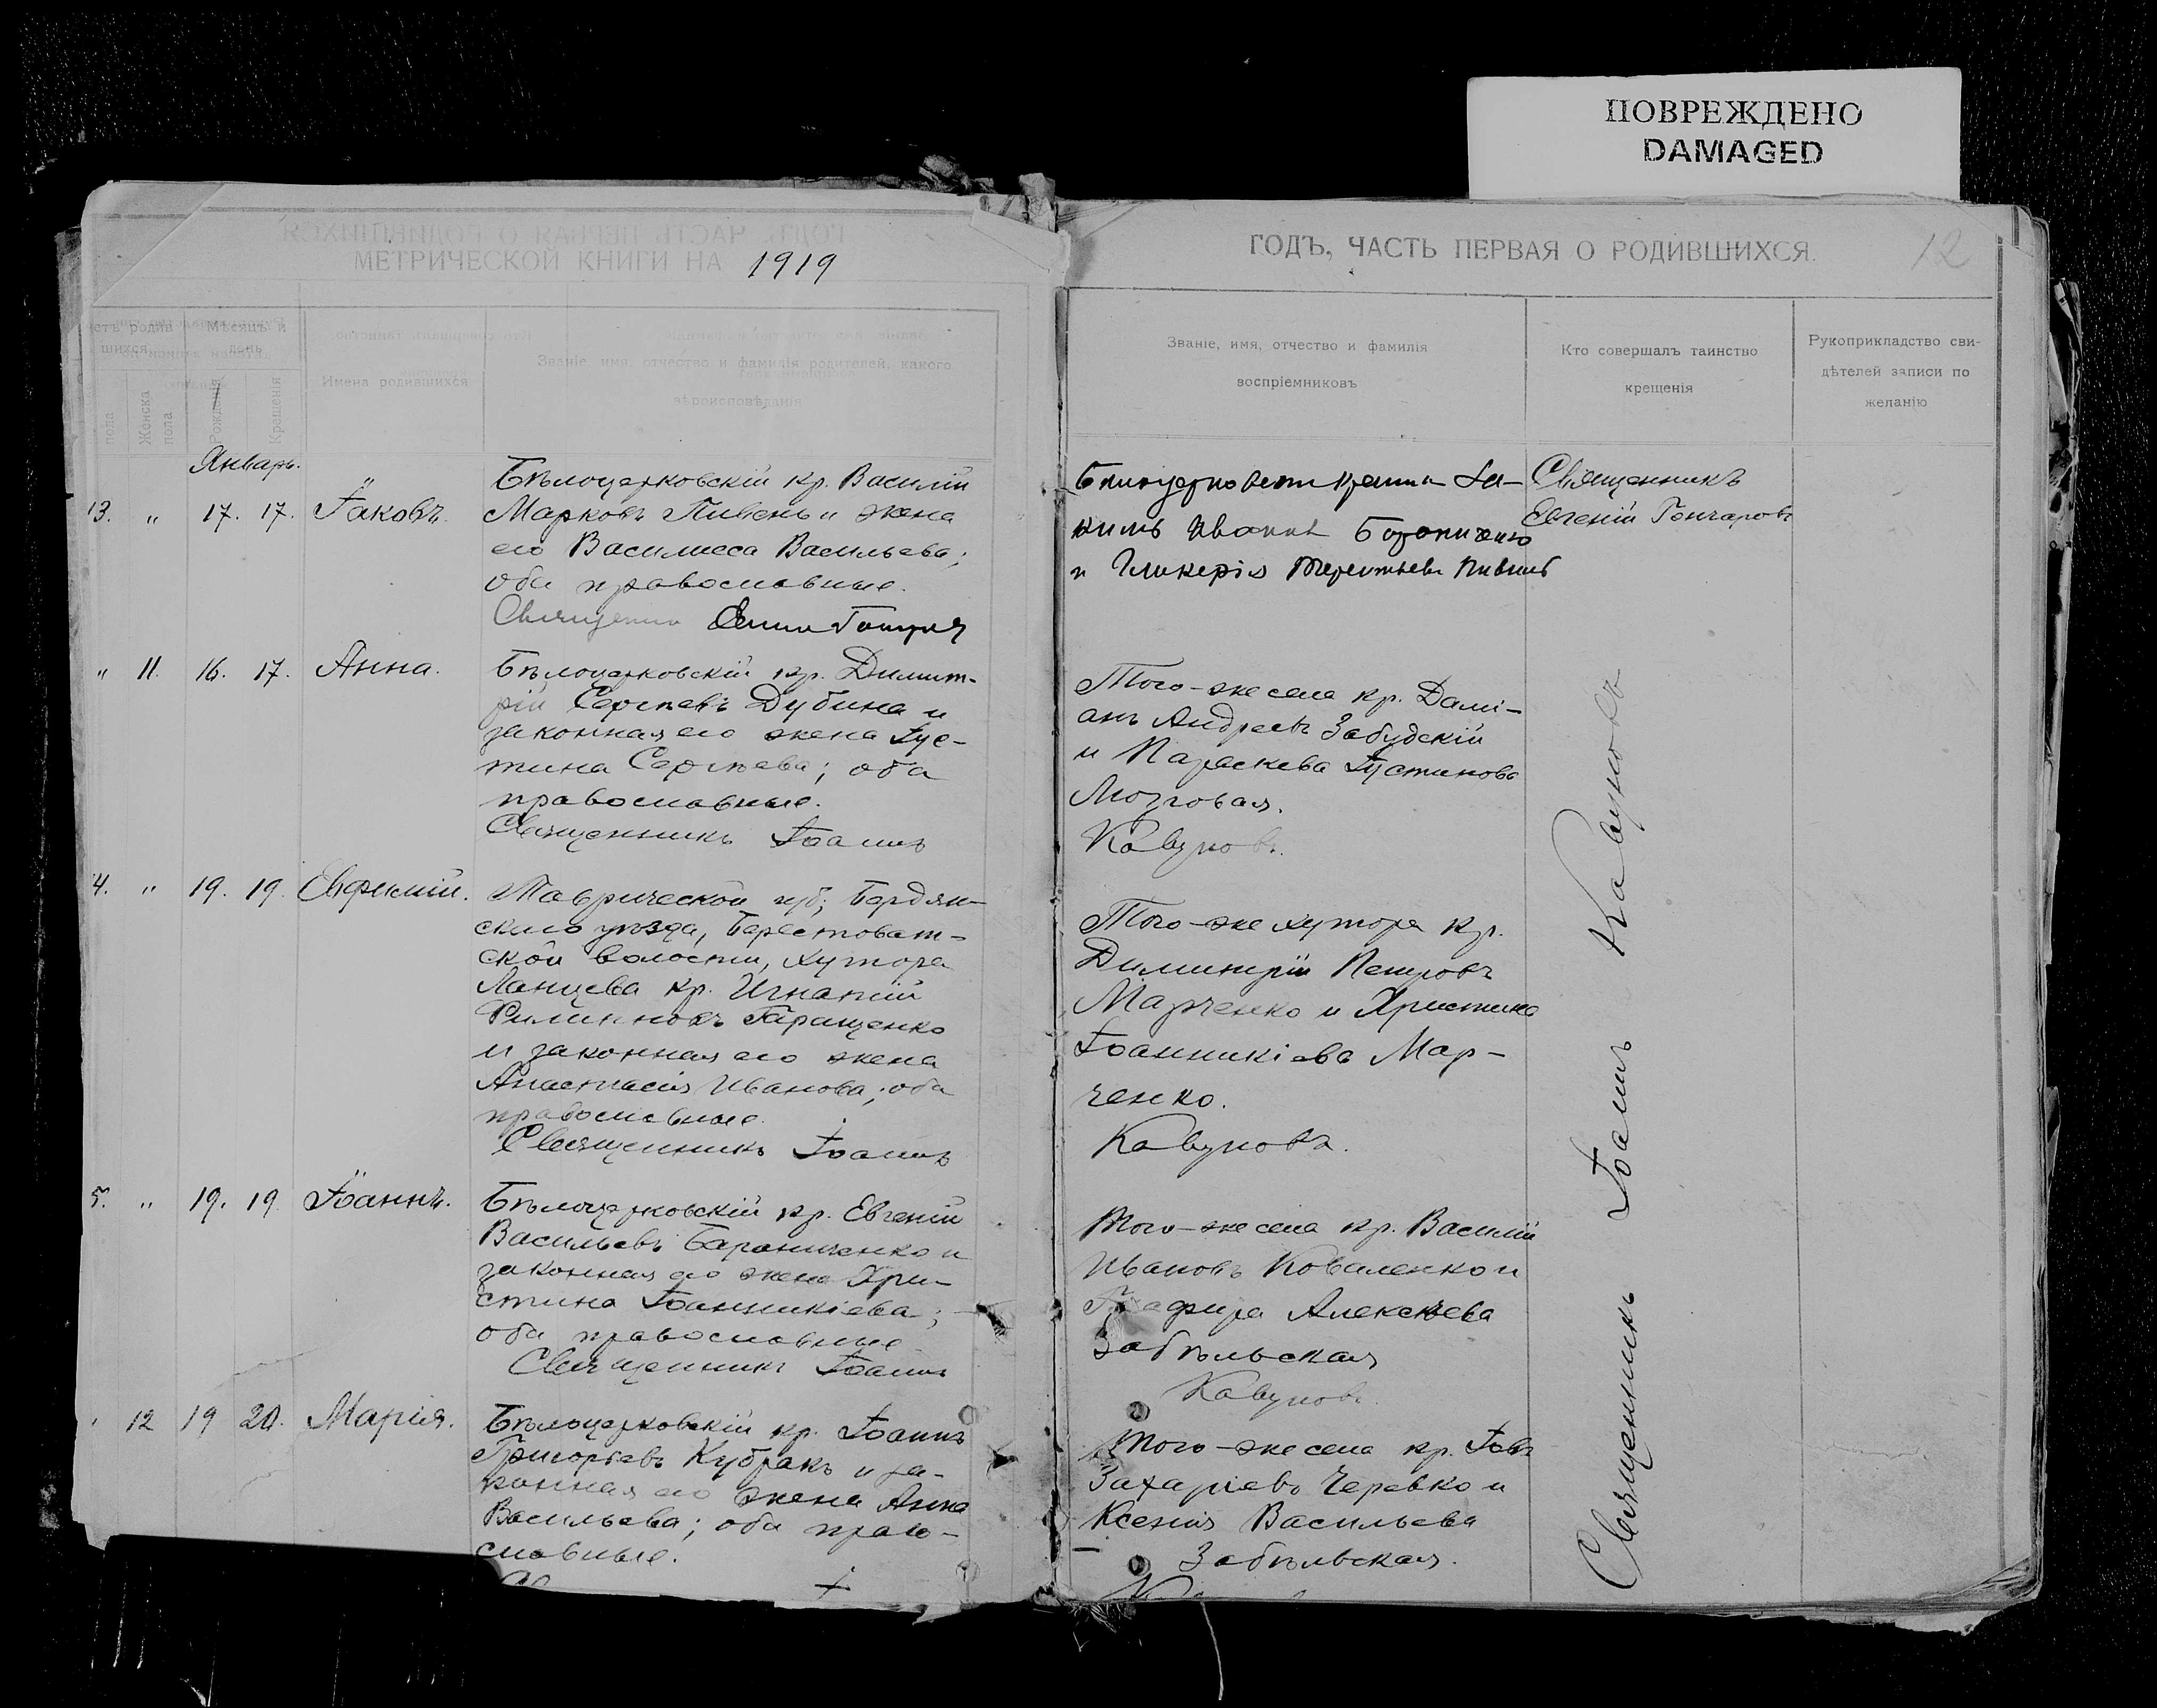 ПОВРЕЖДЕНО
DAMAGED
МЕТРИЧЕСКОЙ КНИГИ НА 1919
ГОДЪ, ЧАСТЬ ПЕРВАЯ О РОДИВШИХСЯ.
12
родив
шихся
Мѣсяцъ и
день
пола
Женска
пола
Рожденія
Крещенія
Имена родившихся
Званіе, имя, отчество и фамилія родителей, какого
вѣроисповѣданія
Званіе, имя, отчество и фамилія
воспріемниковъ
Кто совершалъ таинство
крещенія
Рукоприкладство сви-
дѣтелей записи по
желанію
Январь.
13. " 17. 17. Іаковъ.
Бѣлоцерковскій кр. Василій
Марковъ Пивень и жена
его Василисса Васильева;
оба православные.
Іа-
кимъ Иванов
и Гликерія Терентьева
Священникъ
Евгеній Гончаровъ
" 11. 16. 17. Анна.
Бѣлоцерковскій кр. Димит-
рій Сергѣевъ Дубина и
законная его жена Іус-
тина Сергѣева; оба
православные.
Священникъ Іоаннъ
Того-же села кр. Дамі-
анъ Андреевъ Забудскій
и Параскева Іустинова
Мозговая.
Кавуновъ.
4. " 19. 19. Евфимій.
Таврической губ; Бердян-
скаго уѣзда, Берестоват-
ской волости, хутора
Ланцева кр. Игнатій
Филипповъ Таращенко
и законная его жена
Анастасія Иванова; оба
православные.
Священникъ Іоаннъ
Того-же хутора кр.
Димитрій Петровъ
Марченко и Христина
Іоанникіева Мар-
ченко.
Кавуновъ.
5. " 19. 19. Іоаннъ.
Бѣлоцерковскій кр. Евгеній
Васильевъ Бараниченко и
законная его жена Хри-
стина Іоанникіева;
оба православные
Священникъ Іоаннъ
Того-же села кр. Василій
Ивановъ Коваленко и
Алексѣева
Забѣльская
Кавуновъ.
12 19 20. Марія.
Бѣлоцерковскій кр. Іоаннъ
Григорьевъ Кубракъ и за-
конная его жена Анна
Васильева; оба право-
славные.
Того-же села кр. Іовъ
Захаріевъ Черевко и
Ксенія Васильева
Забѣльская.
Священникъ Іоаннъ Кавуновъ